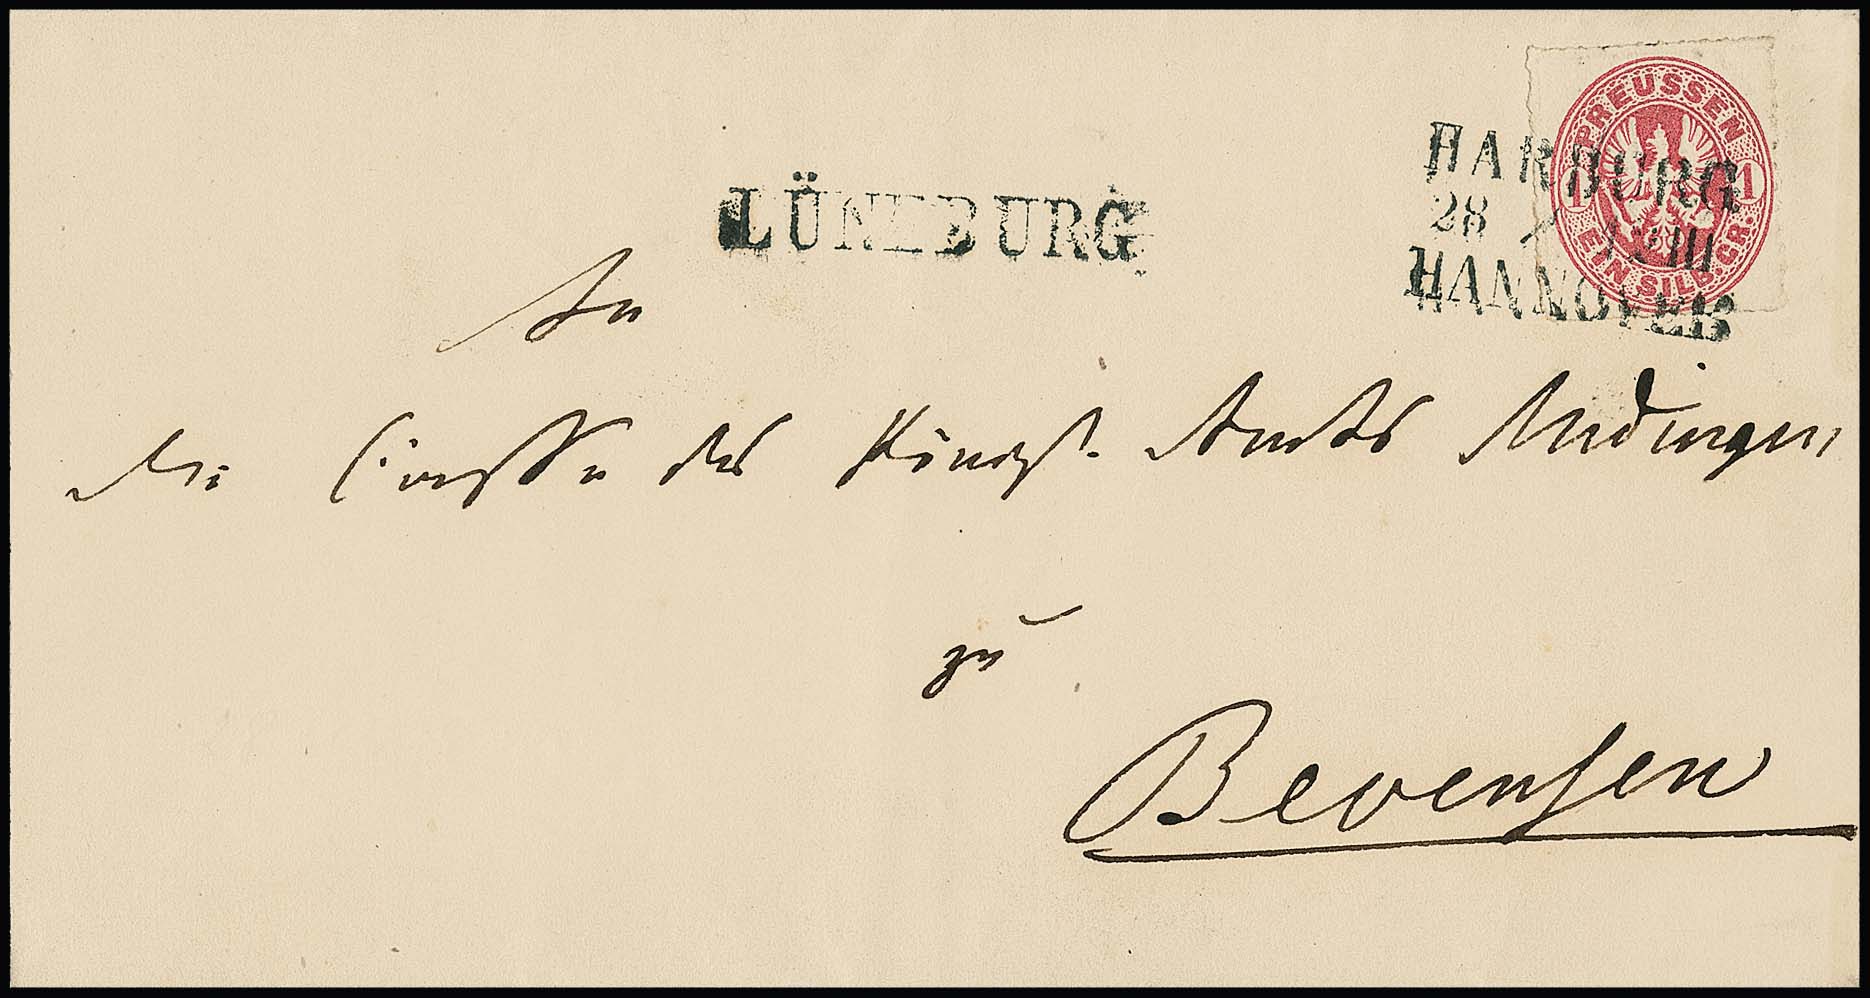 PREUSSEN
1 1
EIN SILB.GR.
HARBURG
28 VIII
HANNOVER
LÜNEBURG
An
die Casse des Königl. Amts Medingen
zu
Bevensen